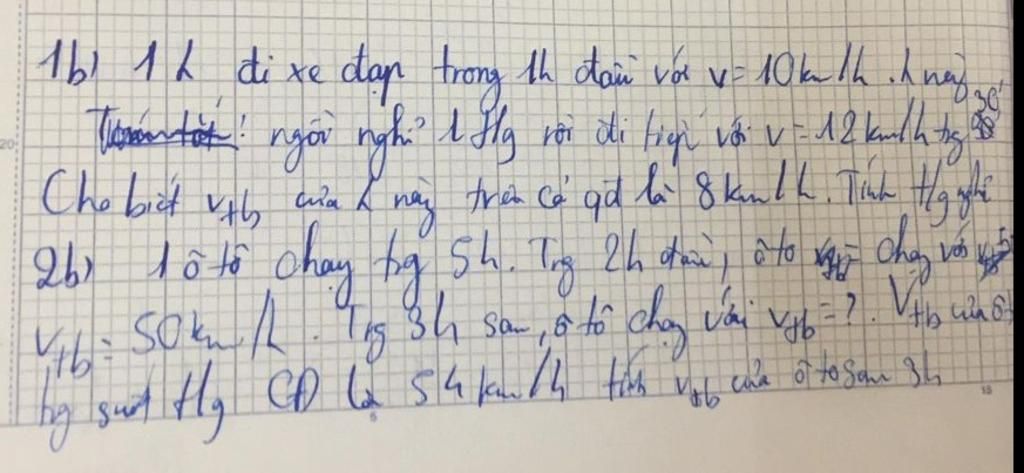 1b) 1 h đi xe đạp trong 1h đầu với v = 10km/h. h này
ngồi nghỉ 1 tg rồi đi tiếp với v = 12km/h tg 30'
Cho biết vtb của h này trên cả qđ là 8km/h. Tính tg nghỉ
2b) 1 ô tô chạy tg 5h. Trg 2h đầu, ô tô chạy với
vtb = 50km/h. Trg 3h sau, ô tô chạy với vtb = ?. Vtb của ô tô
tg suốt tg CĐ là 54km/h tính vtb của ô tô sau 3h